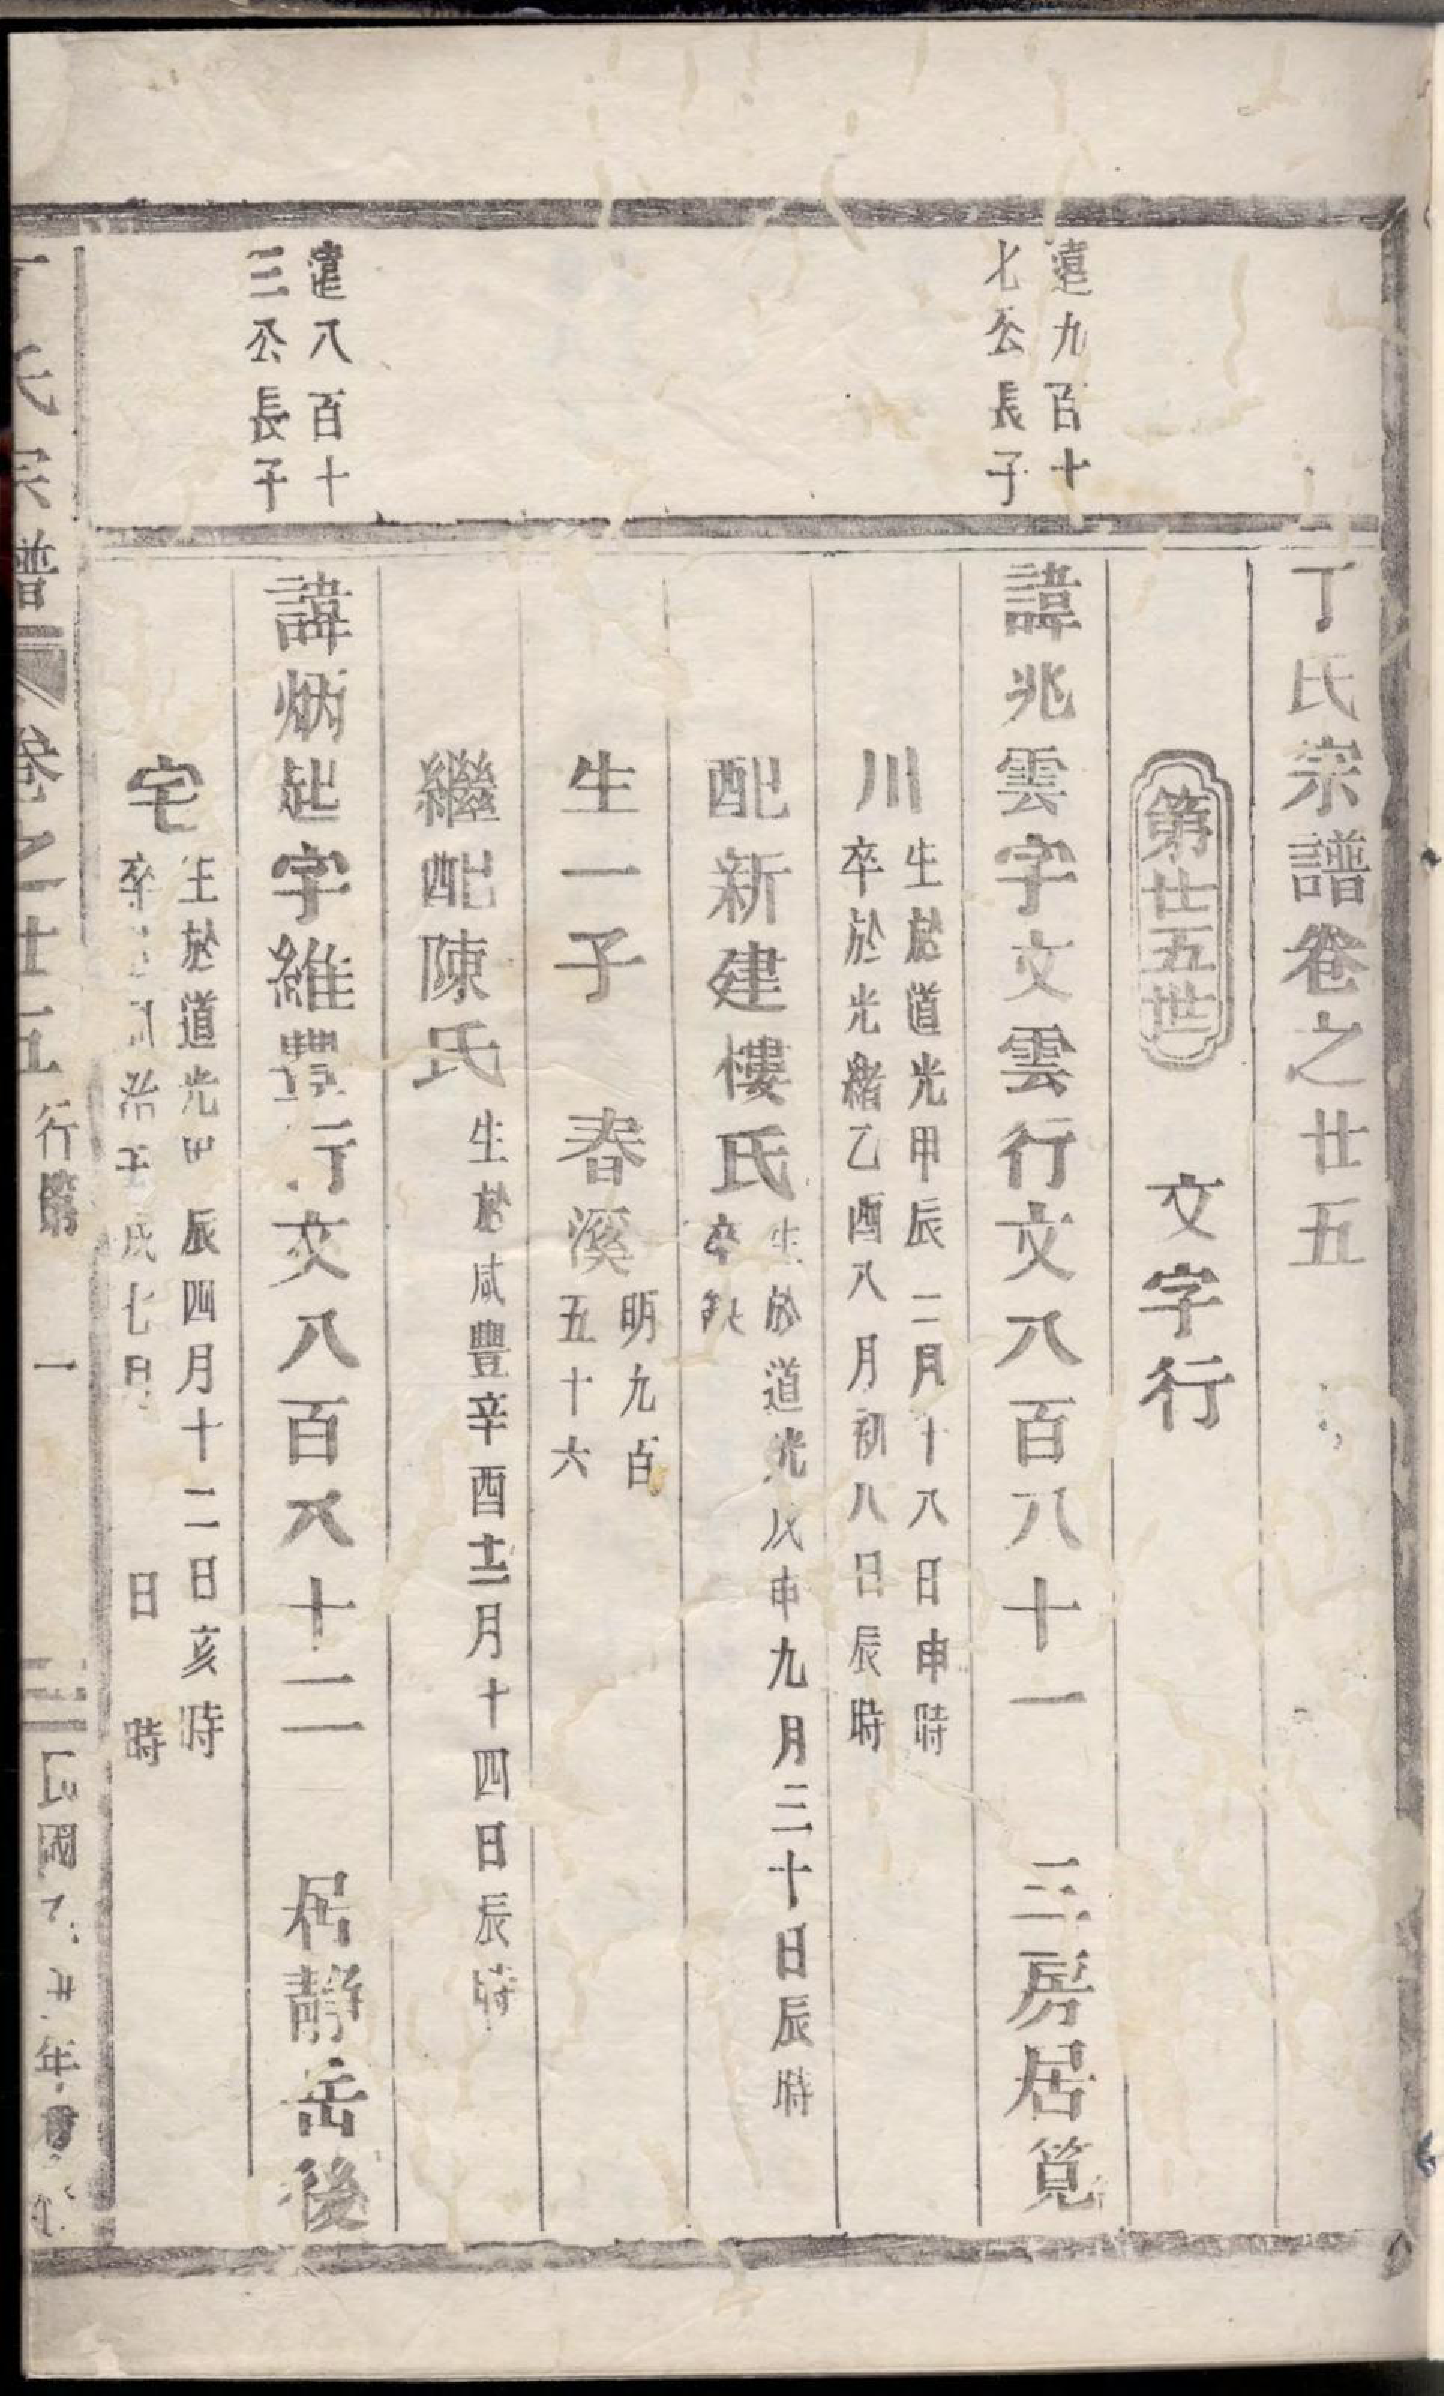 丁氏宗譜卷之廿五
第廿五世 文字行
遠九百十
七公長子
諱兆雲字文雲行文八百八十一 三房居筧
川
生於道光甲辰二月十八日申時
卒於光緒乙酉八月初八日辰時
配新建樓氏
生於道光戊申九月三十日辰時
卒缺
生一子 春溪
明九百
五十六
繼配陳氏
生於咸豐辛酉十二月十四日辰時
遠八百十
三公長子
諱炳 字維豐行文八百八十二 居靜岳後
宅
生於道光甲辰四月十二日亥時
卒 同治壬戌七月 日 時
丁氏宗譜 卷之廿五 行第 一 民國 年